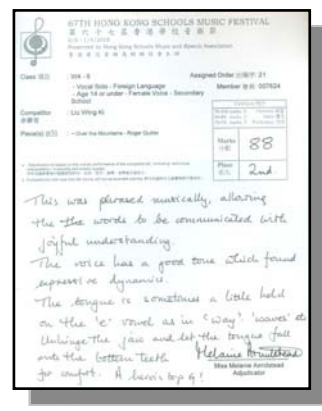 67TH HONG KONG SCHOOLS MUSIC FESTIVAL
第六十七屆香港學校音樂節
Presented by Hong Kong Schools Music and Speech Association
Class 項目 : W4 - 6
- Vocal Solo - Foreign Language
- Age 14 or under - Female Voice - Secondary School
Assigned Order 出場序: 21
Member 會員: 007624
Competitor 參賽者 : Liu Wing Ki
Piece(s) 曲目 : ~Over the Mountains - Roger Quilter
Marks 分數 88
Place 名次 2nd.
This was phrased musically, allowing
the the words to be communicated with
joyful understanding.
The voice has a good tone which found
expressive dynamics.
The tongue is sometimes a little held
on the 'e' vowel as in 'way' 'waves' etc
Unhinge the jaw and let the tongue fall
onto the bottom teeth
for comfort. A heroic top G!
Miss Melanie Armitstead
Adjudicator